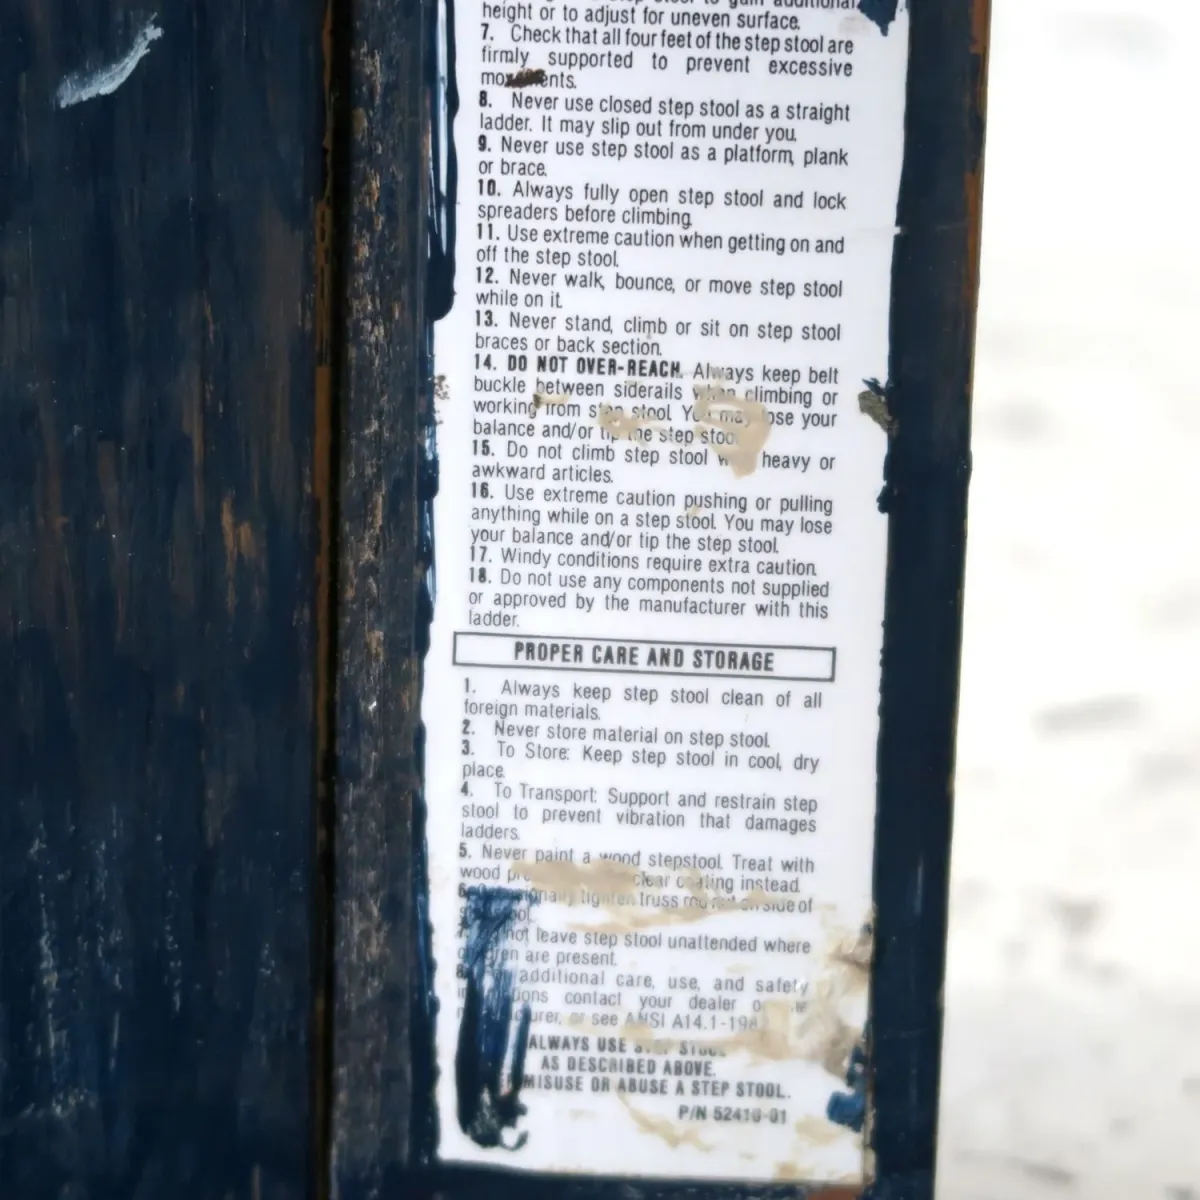 step stool to gain additional
height or to adjust for uneven surface.
7. Check that all four feet of the step stool are
firmly supported to prevent excessive
movements.
8. Never use closed step stool as a straight
ladder. It may slip out from under you.
9. Never use step stool as a platform, plank
or brace.
10. Always fully open step stool and lock
spreaders before climbing.
11. Use extreme caution when getting on and
off the step stool.
12. Never walk, bounce, or move step stool
while on it.
13. Never stand, climb or sit on step stool
braces or back section.
14. DO NOT OVER-REACH. Always keep belt
buckle between siderails when climbing or
working from step stool. You may lose your
balance and/or tip the step stool.
15. Do not climb step stool with heavy or
awkward articles.
16. Use extreme caution pushing or pulling
anything while on a step stool. You may lose
your balance and/or tip the step stool.
17. Windy conditions require extra caution.
18. Do not use any components not supplied
or approved by the manufacturer with this
ladder.
PROPER CARE AND STORAGE
1. Always keep step stool clean of all
foreign materials.
2. Never store material on step stool.
3. To Store: Keep step stool in cool, dry
place.
4. To Transport: Support and restrain step
stool to prevent vibration that damages
ladders.
5. Never paint a wood stepstool. Treat with
wood clear coating instead.
6. Occasionally tighten truss rod nut on side of
step stool.
7. not leave step stool unattended where
children are present.
8. additional care, use, and safety
instructions contact your dealer or
manufacturer, or see ANSI A14.1-198
ALWAYS USE STEP STOOL
AS DESCRIBED ABOVE.
MISUSE OR ABUSE A STEP STOOL.
P/N 52410-01